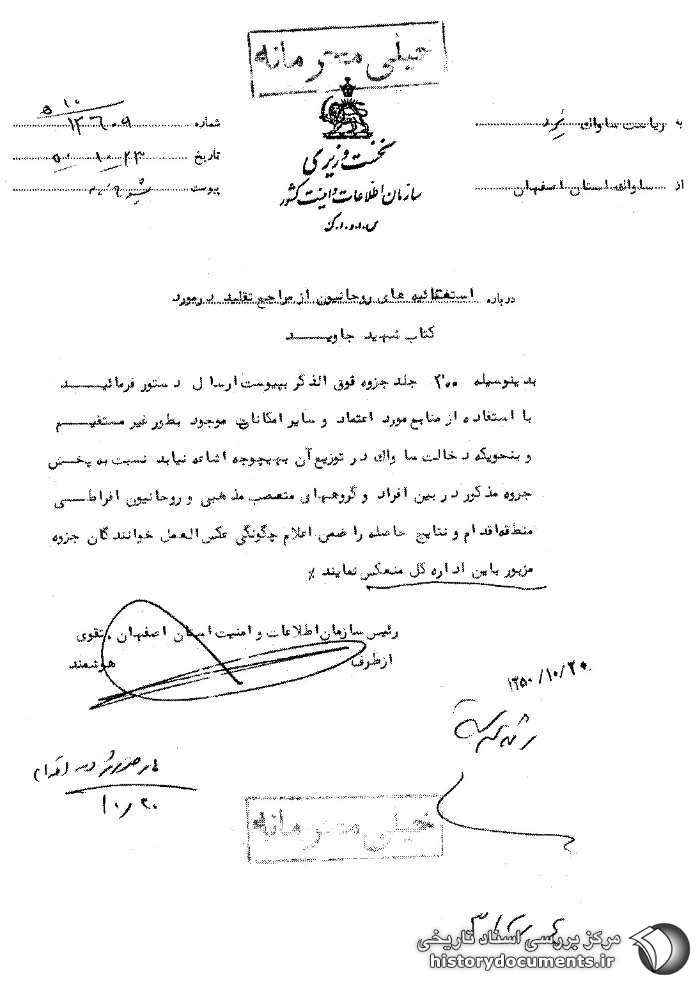 خیلی محرمانه
نخست وزیری
سازمان اطلاعات و امنیت کشور
به ریاست ساواک یزد
از ساواک استان اصفهان
شماره
تاریخ
پیوست
درباره استفتائیه های روحانیون از مراجع تقلید در مورد
کتاب شهید جاوید
بدینوسیله ۳۰۰ جلد جزوه فوق الذکر بپیوست ارسال دستور فرمائید
با استفاده از منابع مورد اعتماد و سایر امکانات موجود بطور غیر مستقیم
و بنحویکه دخالت ساواک در توزیع آن بهیچوجه اشاعه نیابد نسبت به پخش
جزوه مذکور در بین افراد و گروههای متعصب مذهبی و روحانیون افراطی
منطقه اقدام و نتایج حاصله را ضمن اعلام چگونگی عکس العمل خوانندگان جزوه
مزبور باین اداره کل منعکس نمایند ٪
رئیس سازمان اطلاعات و امنیت استان اصفهان . تقوی
از طرف هوشمند
۱۳۵۰/۱۰/۲۰
۱۰/۲۰
خیلی محرمانه
مرکز بررسی اسناد تاریخی
historydocuments.ir